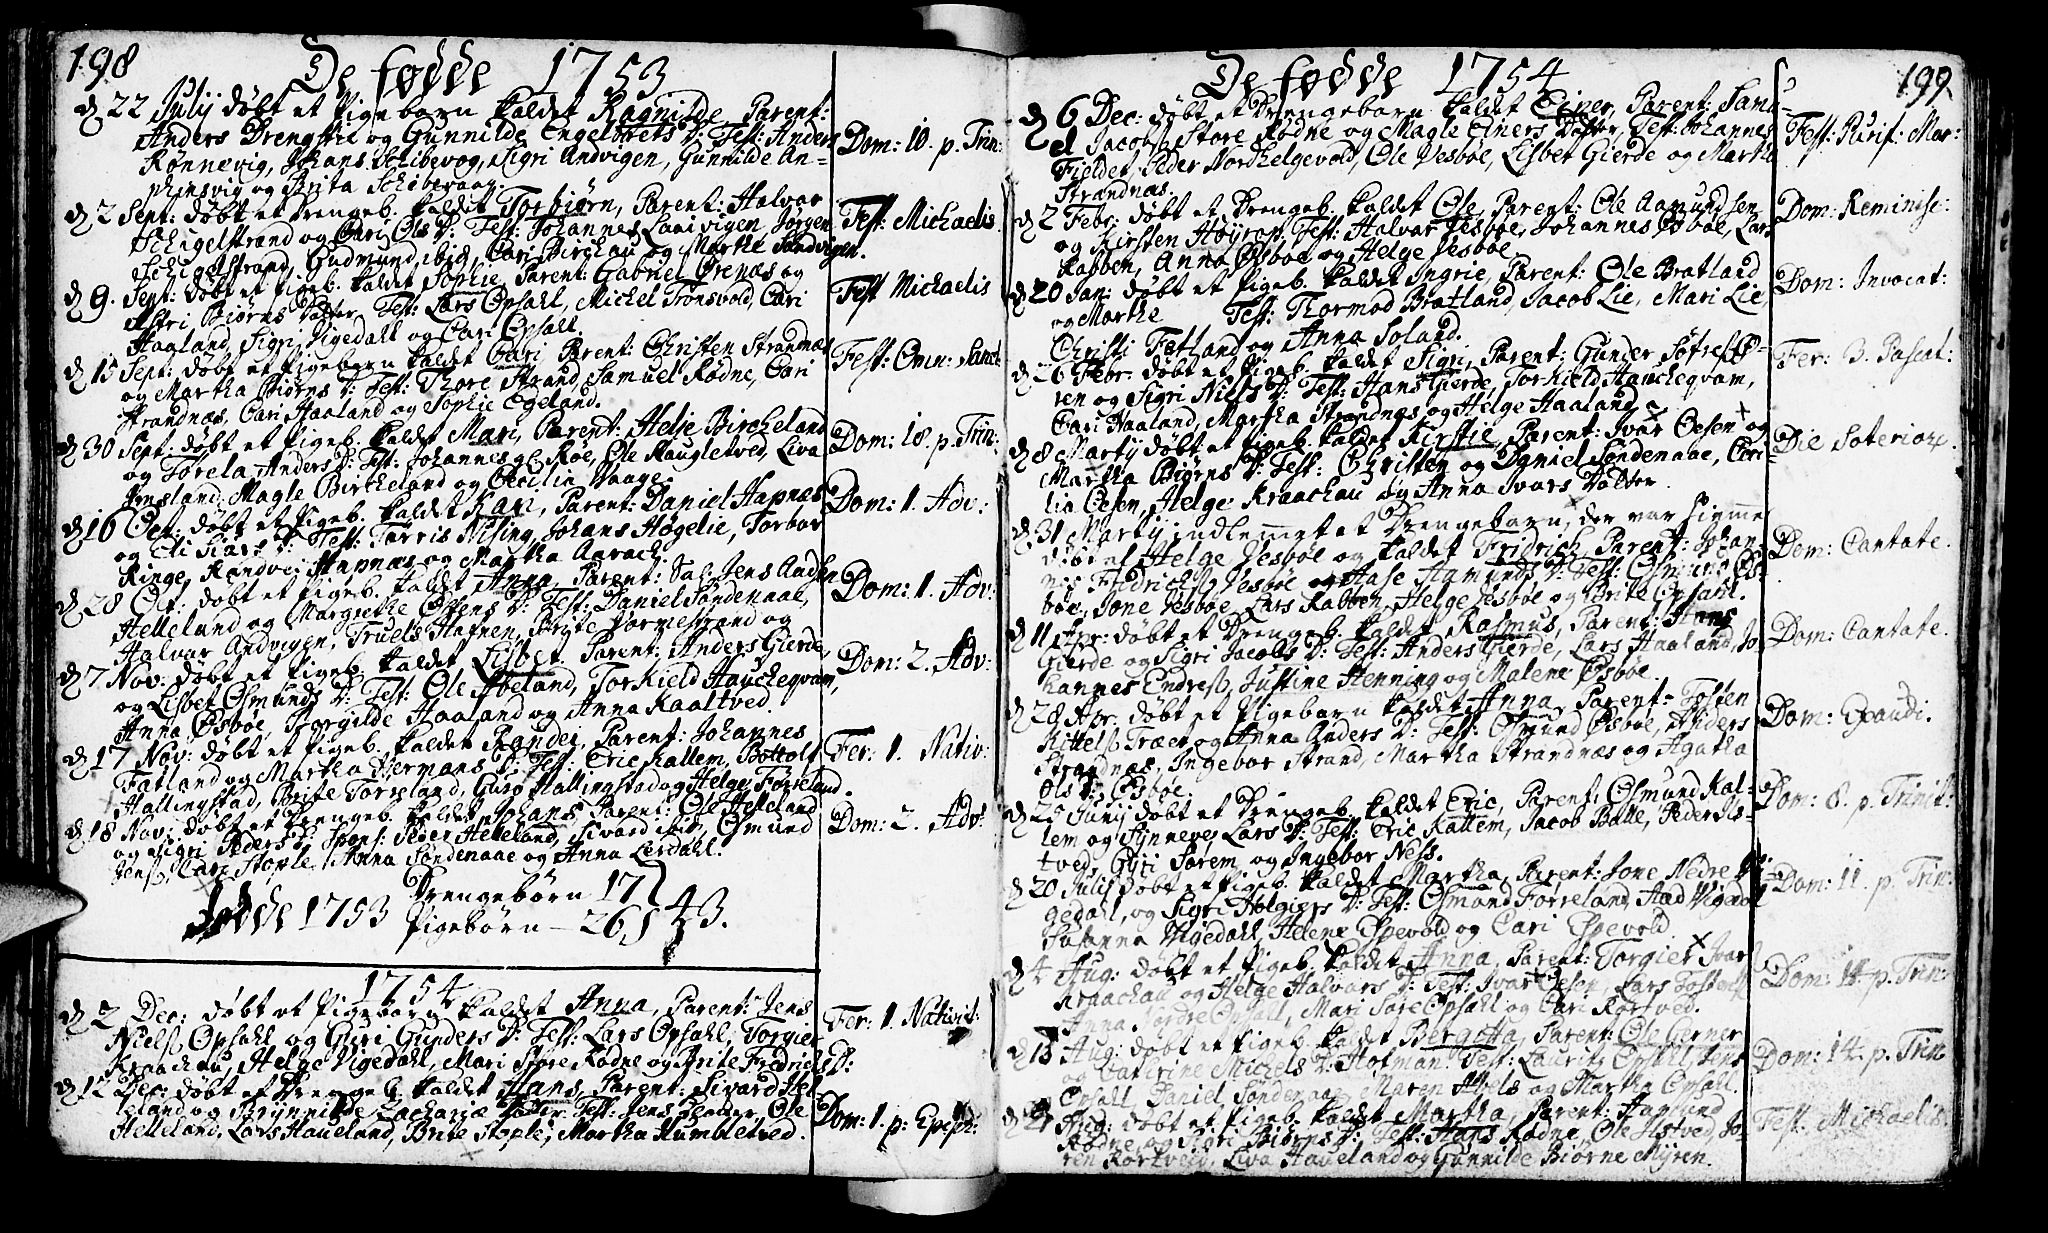 198
De fødde 1753
d 22 Julij døbt et Pigebarn kaldet Ragnilde, Parent:
Anders Drengstig og Gunnilde Engelbrets D: Test: Anders
Rønnevig, Johans Schibevog, Sigri Andvigen, Gunnilde An-
phinsvig og Brita Schibevaag.
Dom: 10. p. Trin:
d 2 Sept: døbt et Drengeb. kaldet Torbiørn, Parent: Halvar
Schugelstrand og Cari Ols D: Test: Johannes Lauvigen, Jørgen
Schugelstrand, Gudmund ibid, Cari Birchau og Martha Sandvigen.
Fest: Michaelis
d 9. Sept: døbt et Pigeb. kaldet Sophie, Parent: Gabriel Ørenæs og
Astri Biørns Datter, Test: Lars Opsahl, Michel Trønsvold, Cari
Haaland, Sigri Vigedahl og Cari Opsall.
Fest Michaelis
d 15 Sept: døbt et Pigebarn kaldet Cari, Parent: Christen Strandnæs
og Martha Biørns D: Test: Thore Strand, Samuel Rødne, Cari
Strandnæs, Cari Haaland og Sophie Egeland.
Fest: Omn: Sanct
d 30 Sept: døbt et Pigeb. kaldet Mari, Parent: Helje Bircheland
og Torela Anders D: Test: Johannes Røe, Ole Raugletved, Liva
Jøsland, Magle Bircheland og Cecilia Vaage.
Dom: 18. p. Trin:
d 16 Oct: døbt et Pigeb. kaldet Kari, Parent: Daniel Hapnæs
og Eli Siurs D: Test: Tørris Nising, Johans Høgelie, Torbor
Ringe, Randvei Hapnæs og Martha Aarach.
Dom: 1. Adv:
d 28 Oct: døbt et Pigeb. kaldet Anna, Parent: Sal: Jens Anders
Helleland og Margrethe Ottens D: Test: Daniel Søndenaae,
Halvar Andvigen, Truels Hafnen, Brite Vormestrand og
Dom: 1. Adv:
d 7 Nov: døbt et Pigeb. kaldet Lisbet. Parent: Anders Gierde,
og Lisbet Osmunds D: Test: Ole Sbeland, Torkield Hauchegvam,
Anna Øsbøe, Borgilde Haaland og Anna Kaaltved.
Dom: 2. Adv:
d 17 Nov: døbt et Pigeb. kaldet Randei, Parent: Johannes
Fatland og Martha Hermans D: Test: Eric Kallem, Bottolf
Hallingstad, Brite Førreland, Guro Hallingstad og Helge Førreland.
Fer: 1. Nativ:
d 18 Nov: døbt et Drengeb. kaldet Johans, Parent: Ole Helleland
og Sigri Peders D: Spons: Peder Helleland, Sivard ibid, Osmund
Jenss, Kari Stople, Anna Søndenaae og Anna Lerdahl.
Dom: 2. Adv:
Fødde 1753 Drengebørn 17
Pigebørn - 26 43.
1754
d 2 Dec: døbt et Pigebarn kaldet Anna, Parent: Jens
Nielss Opsahl og Guri Gunders D: Test: Lars Opsahl, Torgier
Kraachau, Helge Vigedahl, Mari Store Rødne og Brite Fredrichs D:
Fer: 1. Nativit:
d 12 Dec: døbt et Drengeb. kaldet Hans, Parent: Sivard Hel-
leland og Brynnilde Zachariæ Datter, Test: Jens Ole
Helleland, Lars Haueland, Brite Stople, Martha Humbletved.
Dom: 1. p: Epiph:
De fødde 1754
199
d 6 Dec: døbt et Drengebarn kaldet Einer, Parent: Samu-
el Jacobss Store Rødne og Magle Einers Datter, Test: Johannes
Fieldet, Peder Nordhelgevold, Ole Vesbøe, Lisbet Gierde og Martha
Strandnæs.
Fest: Purif: Mar:
d 2 Febr: døbt et Drengeb. kaldet Ole, Parent: Ole Aamundsen
og Kirsten Høyrop: Test: Halvar Vesbøe, Johannes Øsbøe, Lars
Rabben, Anna Øsbøe og Helge Vesbøe.
Dom: Reminisc:
d 20 Jan: døbt et Pigeb. kaldet Ingrie, Parent: Ole Bratland
og Marthe Test: Thormod Bratland, Jacob Lie, Mari Lie,
Christi Fetland og Anna Soland.
Dom: Invocat:
d 26 Febr: døbt et Pigeb. kaldet Sigri, Parent: Gunder Søfress Ø-
ren og Sigri Niels D: Test: Hans Gierde, Torkield Hauchegvam,
Cari Haaland, Martha Strandnæs og Helge Haaland.
Fer: 3. Pascat:
d 8 Martij døbt et Pigeb. kaldet Kirstie, Parent: Ivar Oesen og
Martha Biørns D: Test: Christen og Daniel Søndenaae, Ceci-
lia Oesen, Helge Kraachau og Anna Ivars Datter.
Die Soterior.
d 31 Martij indlemmet et Drengebarn, der var hiemme
døbt af Helge Vesbøe og kaldet Fridrich, Parent: Johan-
nes Fredrichss Vesbøe og Aase Aamunds D: Test: Osmund Øs-
bøe, Jone Vesbøe, Lars Rabben, Helge Vesbøe og Brite Opsahl.
Dom: Cantate.
d 11 Apr: døbt et Drengeb. kaldet Rasmus, Parent: Hans
Gierde og Sigri Jacobs D: Test: Anders Gierde, Lars Haaland, Jo-
hannes Endress, Justine Henning og Malene Øsbøe.
Dom: Cantate.
d 28 Apr: døbt et Pigebarn kaldet Anna, Parent: Tosten
Kittelss Træet og Anna Anders D: Test: Osmund Øsbøe, Anders
Strandnæs, Ingebor Strand, Martha Strandnæs og Agatha
Ols D: Øsbøe.
Dom: Exaudi.
d 25 Junij døbt et Drengeb. kaldet Eric, Parent: Osmund Kal-
lem og Synneve Lars D: Test: Eric Kallem, Jacob Balle, Peder Ils-
tved, Gyri Sørem og Ingebor Ness.
Dom: 8. p. Trinit:
d 20 Julij døbt et Pigeb. kaldet Martha, Parent: Jone Nedre Vi-
gedahl, og Sigri Holgiers D: Test: Osmund Førreland, Aad Vigedal
Susanna Vigedahl, Helene Espevold og Cari Espevold.
Dom: 11. p. Trin:
d 4 Aug: døbt et Pigeb. kaldet Anna, Parent: Torgier Ivars
Kraachau og Helge Halvars D: Test: Ivar Oesen, Lars Tostenss
Anna Nordre Opsall, Mari Søre Opsahl og Cari Rørtved.
Dom: 14. p. Trin:
d 13 Aug: døbt et Pigeb. kaldet Bergitta, Parent: Ole Gerner
og Catrine Michels D: Hofman. Test: Laurits Opsahl, Jens
Opsall, Daniel Søndenaae, Maren Abels og Martha Opsall.
Dom: 14. p. Trin
d 21 Aug: døbt et Pigeb. kaldet Martha, Parent: Aamund
Rødne og Sigri Biørns D: Test: Hans Rødne, Ole Ilstved, Jo-
ren Rørtveid, Liva Haueland og Gunnilde Biørne Myren.
Fest: Michaelis